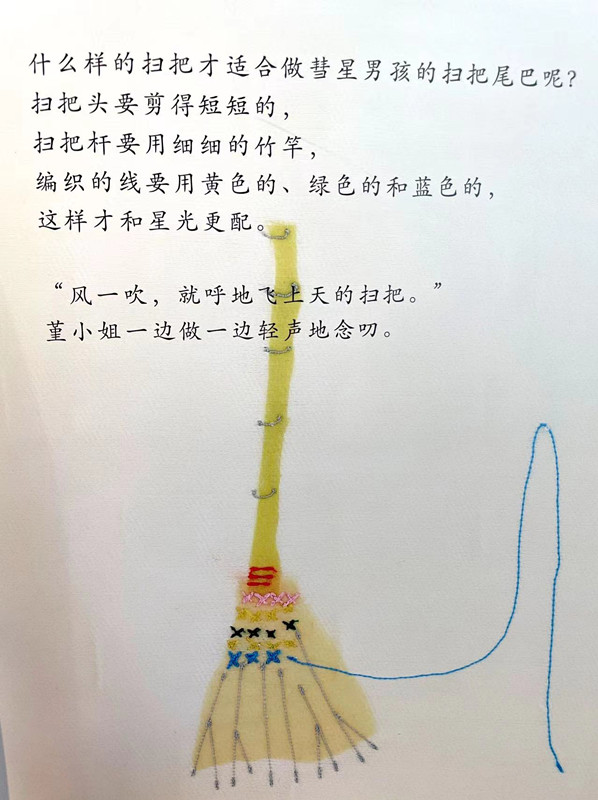 什么样的扫把才适合做彗星男孩的扫把尾巴呢？
扫把头要剪得短短的，
扫把杆要用细细的竹竿，
编织的线要用黄色的、绿色的和蓝色的，
这样才和星光更配。
“风一吹，就呼地飞上天的扫把。”
堇小姐一边做一边轻声地念叨。